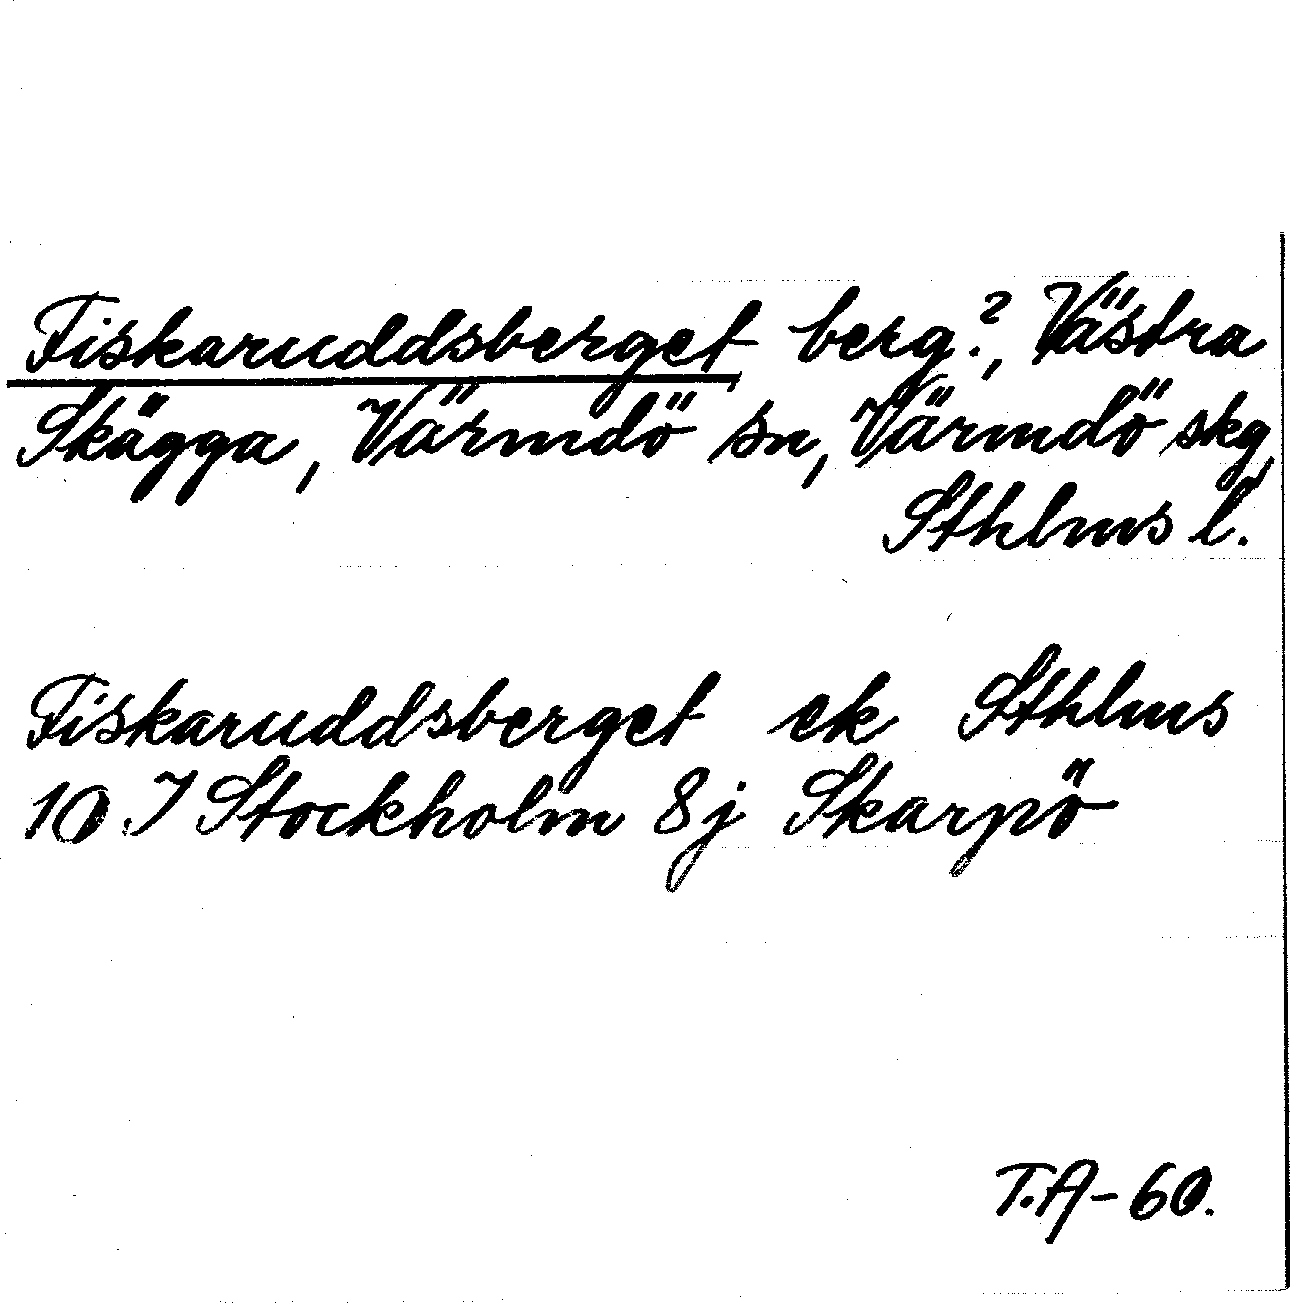 Fiskaruddsberget berg?, Västra
Skägga, Värmdö sn, Värmdö skg,
Sthlms l.
Fiskaruddsberget ek Sthlms
10 I Stockholm 8j Skarpö
T.A-60.